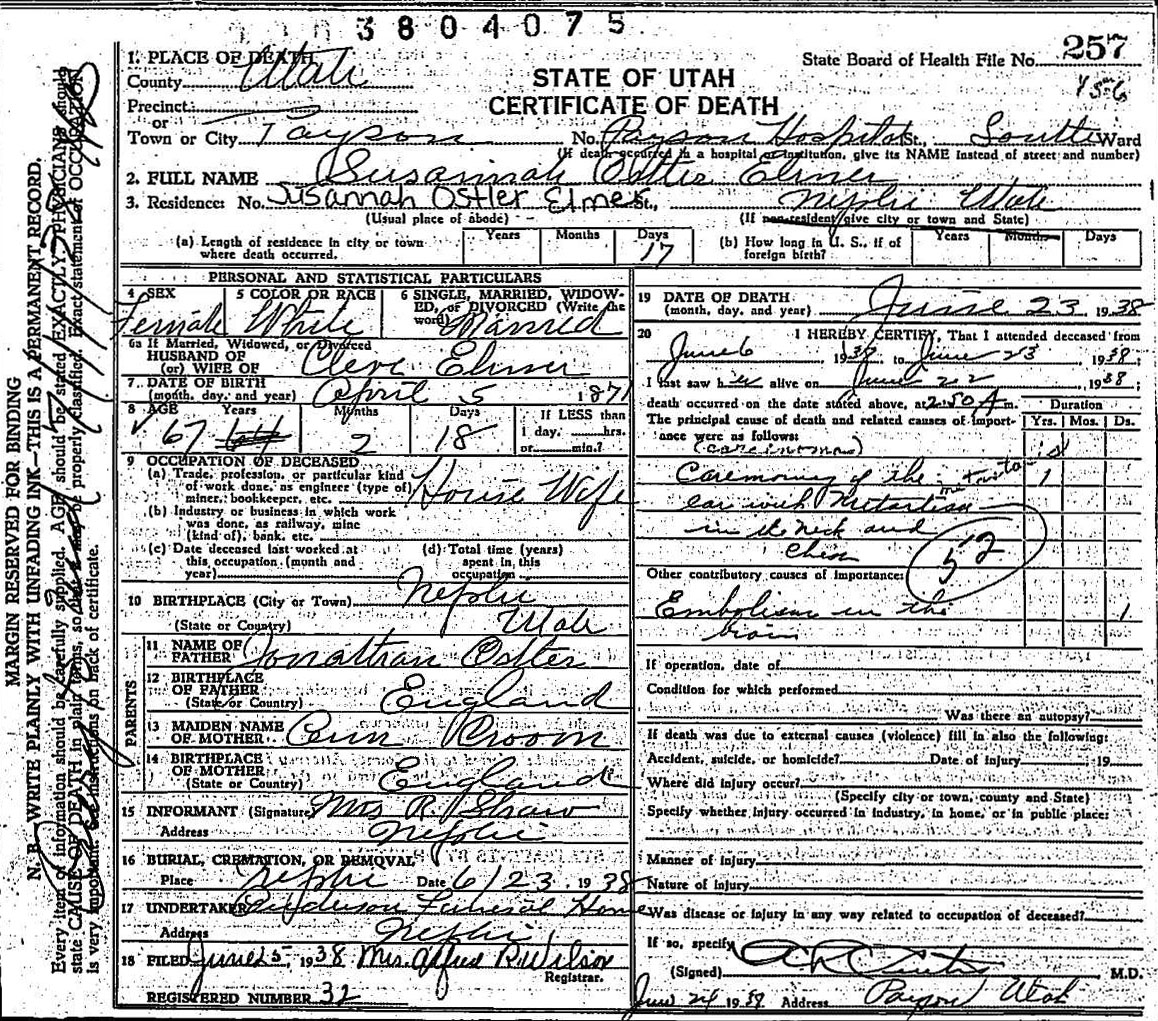 3804075
257
1. PLACE OF DEATH
State Board of Health File No.
County Utah
STATE OF UTAH
Precinct
CERTIFICATE OF DEATH
or
Town or City Payson No. Payson Hospital St., South Ward
(If death occurred in a hospital or institution, give its NAME instead of street and number)
2. FULL NAME Susannah Ostler Elmer
3. Residence: No. Susannah Ostler Elmer St., Nephi Utah
(Usual place of abode) (If non-resident give city or town and State)
(a) Length of residence in city or town where death occurred. Years Months Days 17
(b) How long in U. S., if of foreign birth? Years Months Days
PERSONAL AND STATISTICAL PARTICULARS
4 SEX Female
5 COLOR OR RACE White
6 SINGLE, MARRIED, WIDOWED, or DIVORCED (Write the word) Married
6a If Married, Widowed, or Divorced
HUSBAND OF
(or) WIFE OF Cleve Elmer
7 DATE OF BIRTH
(month, day, and year) April 5 1871
8 AGE Years Months Days If LESS than
67 2 18 1 day, hrs.
or min.?
9 OCCUPATION OF DECEASED
(a) Trade, profession, or particular kind
of work done, as engineer (type of)
miner, bookkeeper, etc. House Wife
(b) Industry or business in which work
was done, as railway, mine
(kind of), bank, etc.
(c) Date deceased last worked at this occupation (month and year)
(d) Total time (years) spent in this occupation
10 BIRTHPLACE (City or Town) Nephi
(State or Country) Utah
PARENTS
11 NAME OF
FATHER Jonathan Ostler
12 BIRTHPLACE
OF FATHER
(State or Country) England
13 MAIDEN NAME
OF MOTHER Ann Croom
14 BIRTHPLACE
OF MOTHER
(State or Country) England
15 INFORMANT (Signature) Mrs R. Shaw
Address Nephi
16 BURIAL, CREMATION, OR REMOVAL
Place Nephi Date 6/23 1938
17 UNDERTAKER Funeral Home
Address Nephi
18 FILED June 25, 1938 Mrs. Alfred R. Wilson
Registrar.
REGISTERED NUMBER 32
19 DATE OF DEATH
(month, day, and year) June 23 1938
20 I HEREBY CERTIFY, That I attended deceased from
June 6 1938 to June 23 1938;
I last saw her alive on June 22, 1938;
death occurred on the date stated above, at 2:50 A m.
Duration
The principal cause of death and related causes of importance were as follows: Yrs. Mos. Ds.
(carcinoma)
of the 1
ear with
in the neck and
52
Other contributory causes of importance:
Embolism in the 1
brain
If operation, date of
Condition for which performed
Was there an autopsy?
If death was due to external causes (violence) fill in also the following:
Accident, suicide, or homicide? Date of injury 19
Where did injury occur?
(Specify city or town, county and State)
Specify whether injury occurred in industry, in home, or in public place:
Manner of injury
Nature of injury
Was disease or injury in any way related to occupation of deceased?
If so, specify
(Signed) M.D.
June 24 1938 Address Payson Utah
MARGIN RESERVED FOR BINDING
N. B. WRITE PLAINLY WITH UNFADING INK—THIS IS A PERMANENT RECORD.
Every item of information should be carefully supplied. AGE should be stated EXACTLY. PHYSICIANS should
state CAUSE OF DEATH in plain terms, so that it may be properly classified. Exact statement of OCCUPATION
is very important. See instructions on back of certificate.